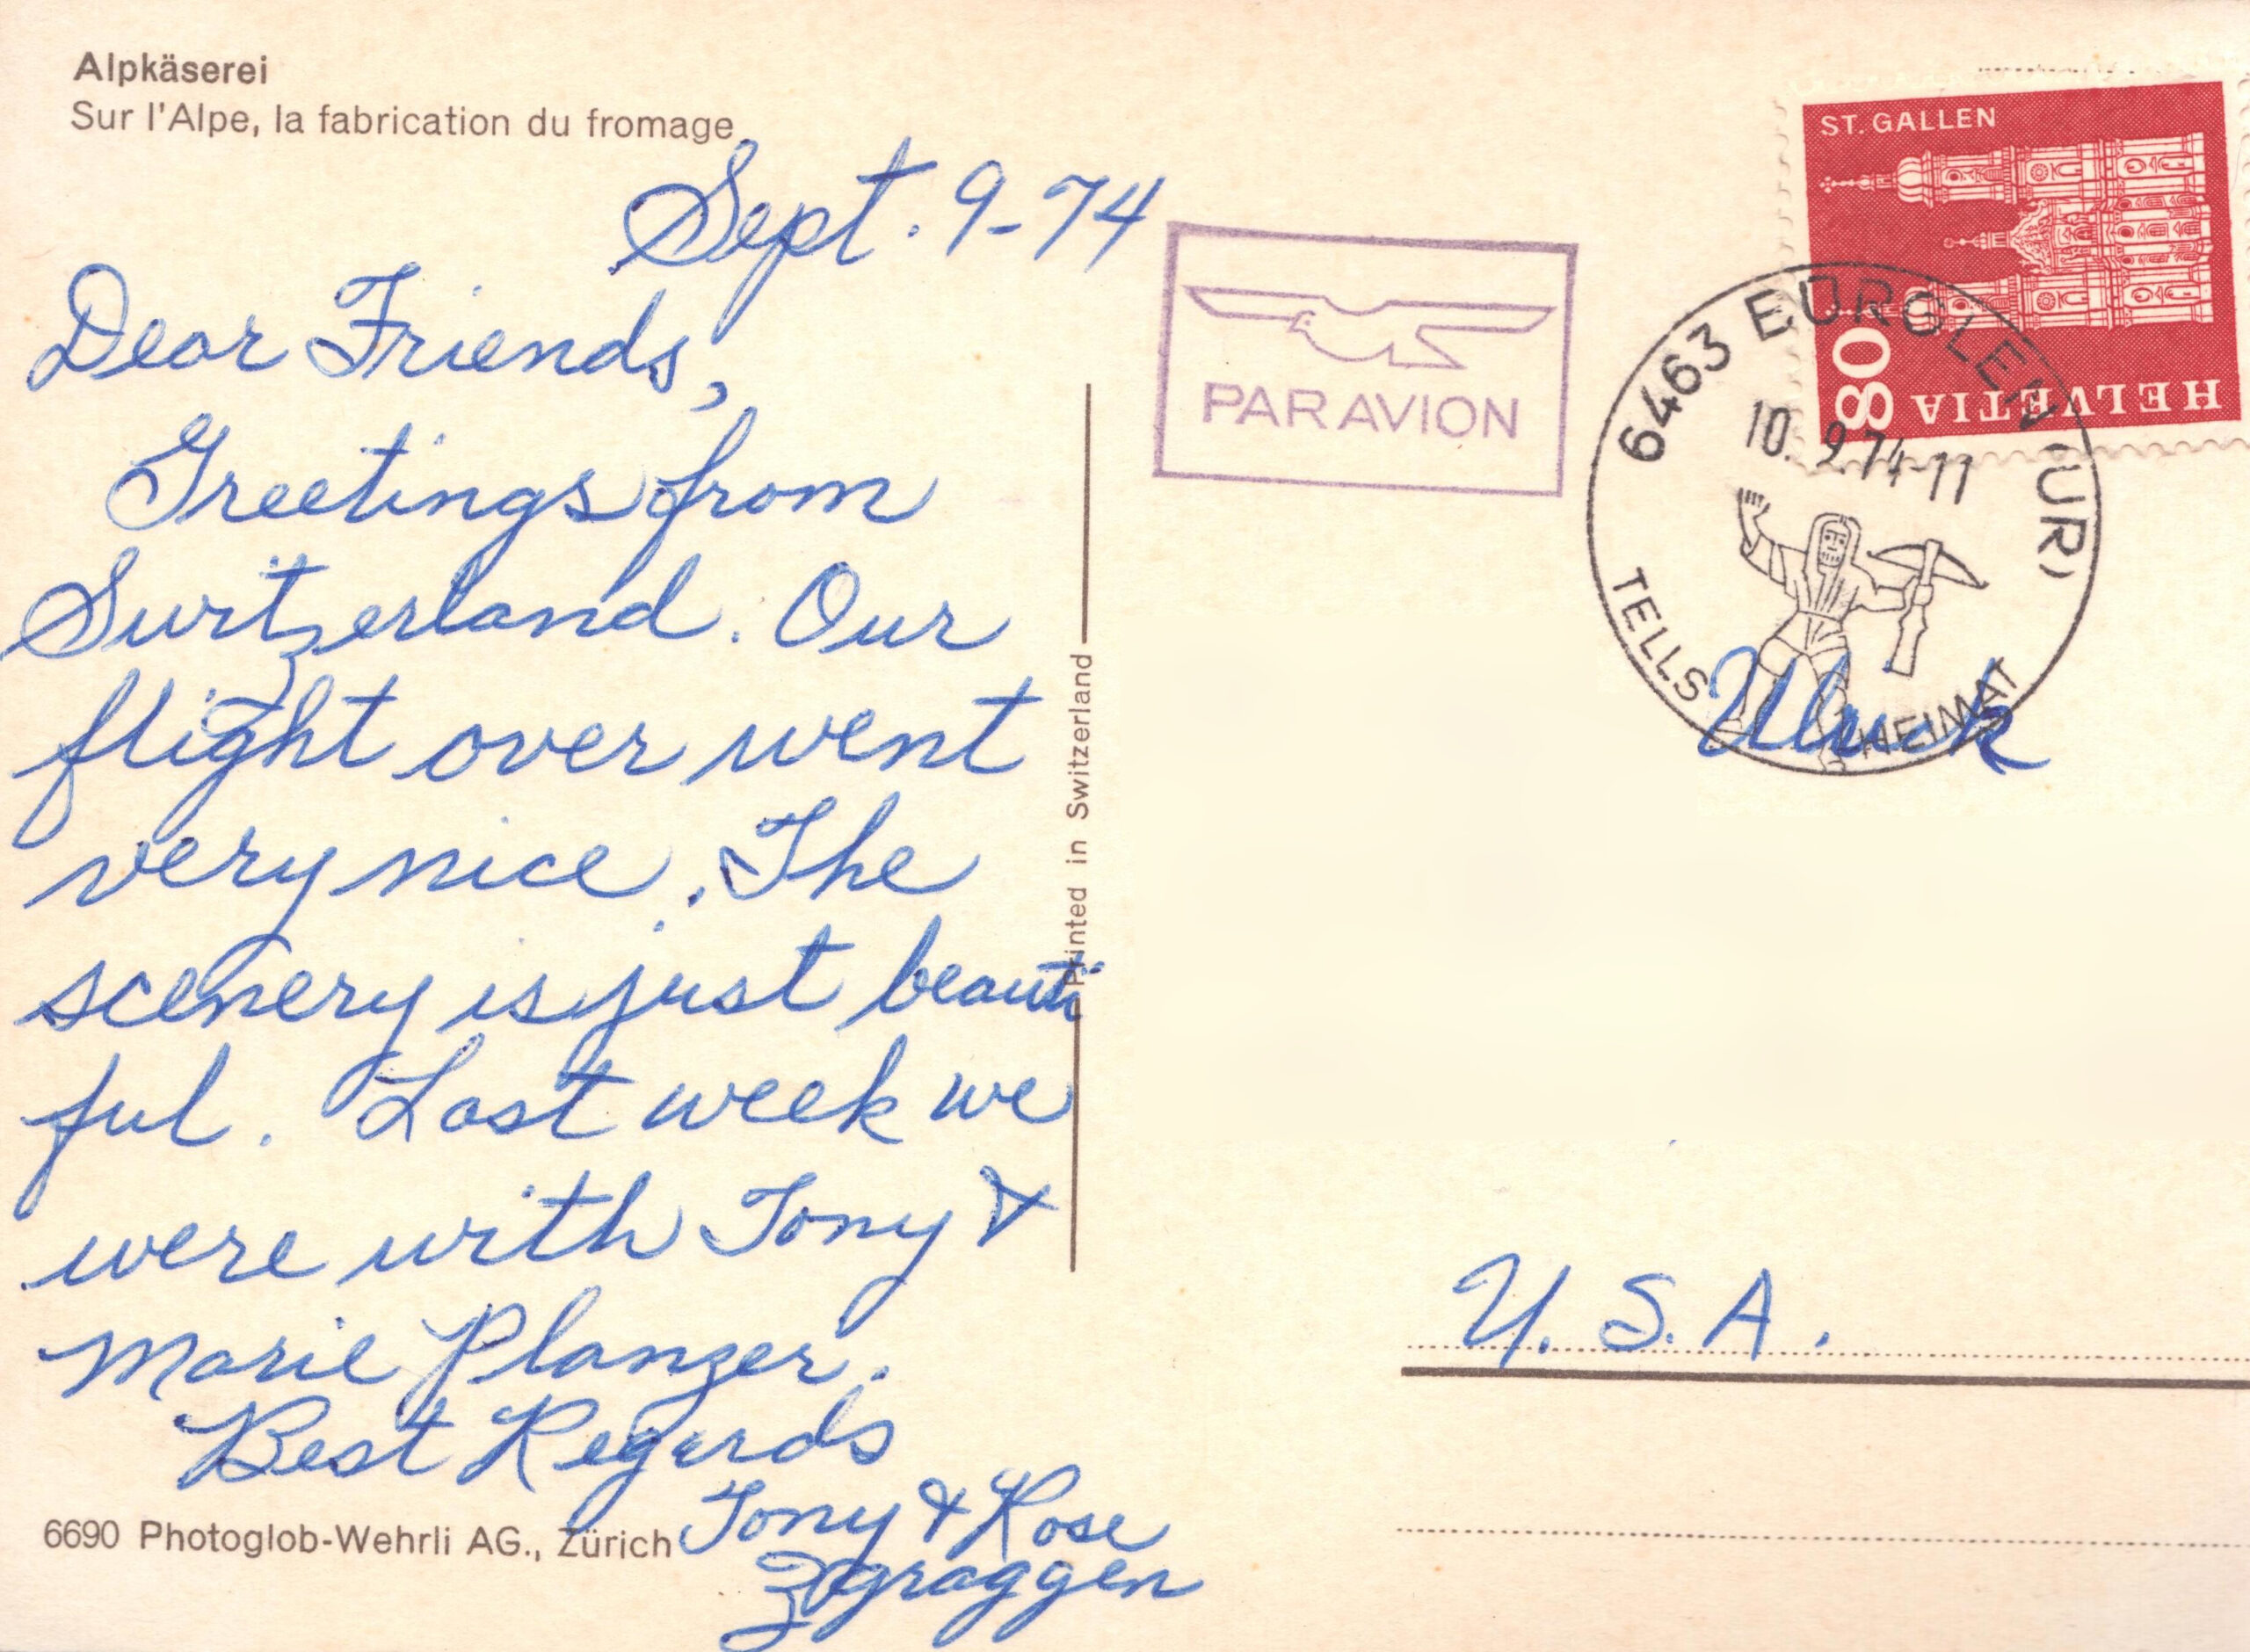 Alpkäserei
Sur l'Alpe, la fabrication du fromage
Sept. 9-74
Dear Friends,
Greetings from
Switzerland. Our
flight over went
very nice. The
scenery is just beauti
ful. Last week we
were with Tony &
Marie Planzer.
Best Regards
Tony & Rose
Zgraggen
6690 Photoglob-Wehrli AG., Zürich
Printed in Switzerland
PAR AVION
ST. GALLEN
HELVETIA
80
6463 BÜRGLEN (UR)
10.9.74-11
TELLS HEIMAT
U.S.A.